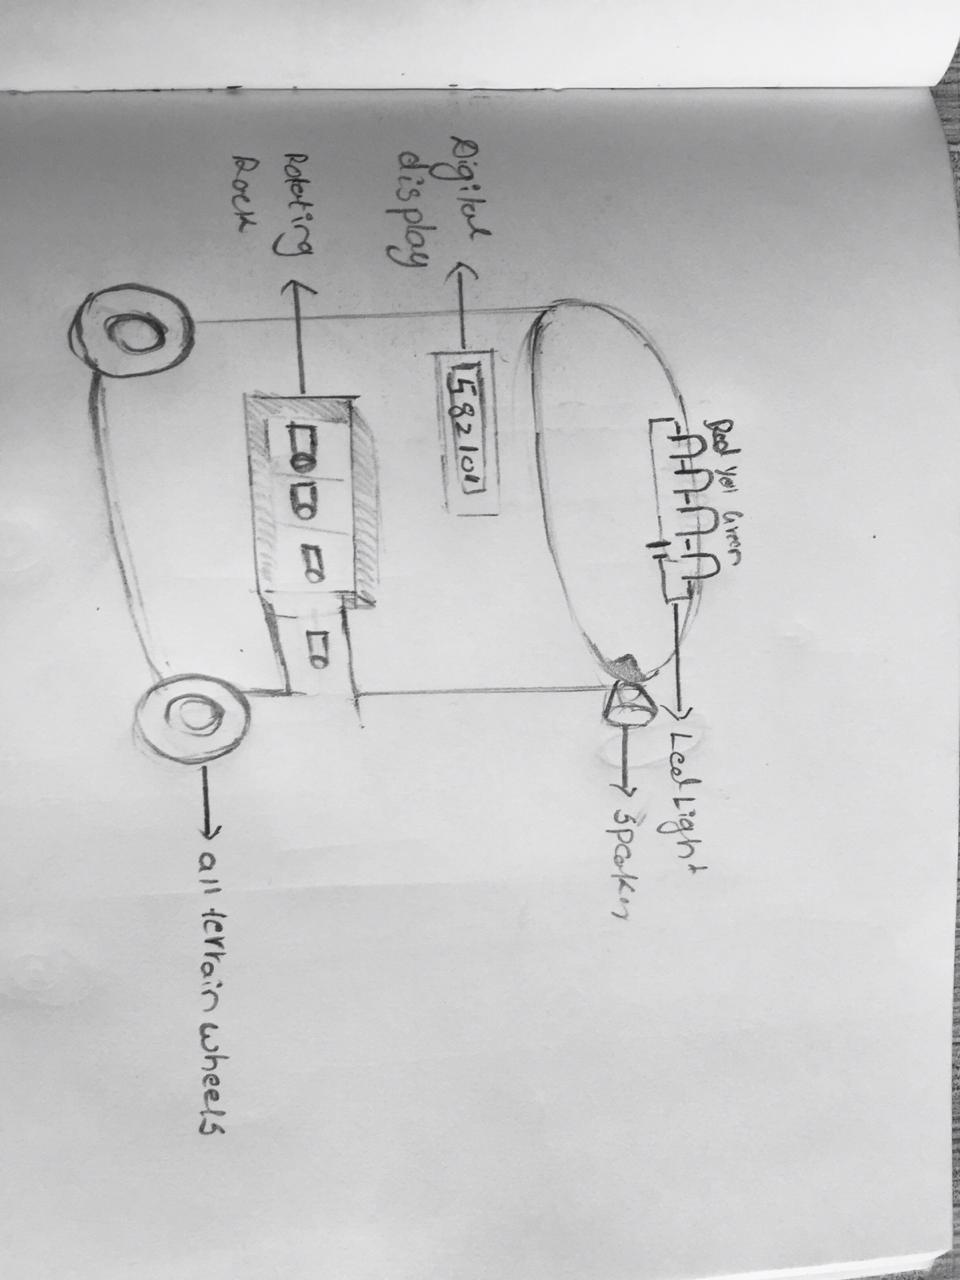 Red Yell Green
Led Light
Speaker
Digital
display
582101
Rotating
Rack
all terrain wheels